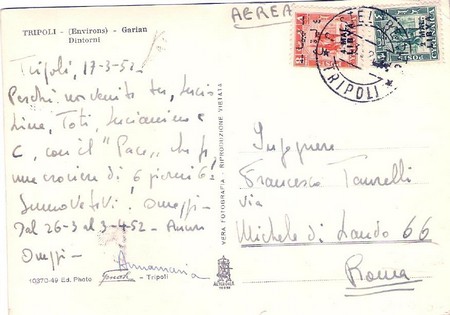 AEREA
TRIPOLI - (Environs) - Garian
Dintorni
Tripoli, 17-3-52
Perché non venite tu, Lucis
Lina, Toti, Lucianino e
C, con il "Pace" che fa
una crociera di 6 giorni
Dal 26-3 al 3-4-52 - Auguri
Omaggi -
Annamaria
10370-49 Ed. Photo - Tripoli
VERA FOTOGRAFIA - RIPRODUZIONE VIETATA
TRIPOLI
Ingegnere
Francesco Taurelli
Via
Michele di Lando 66
Roma